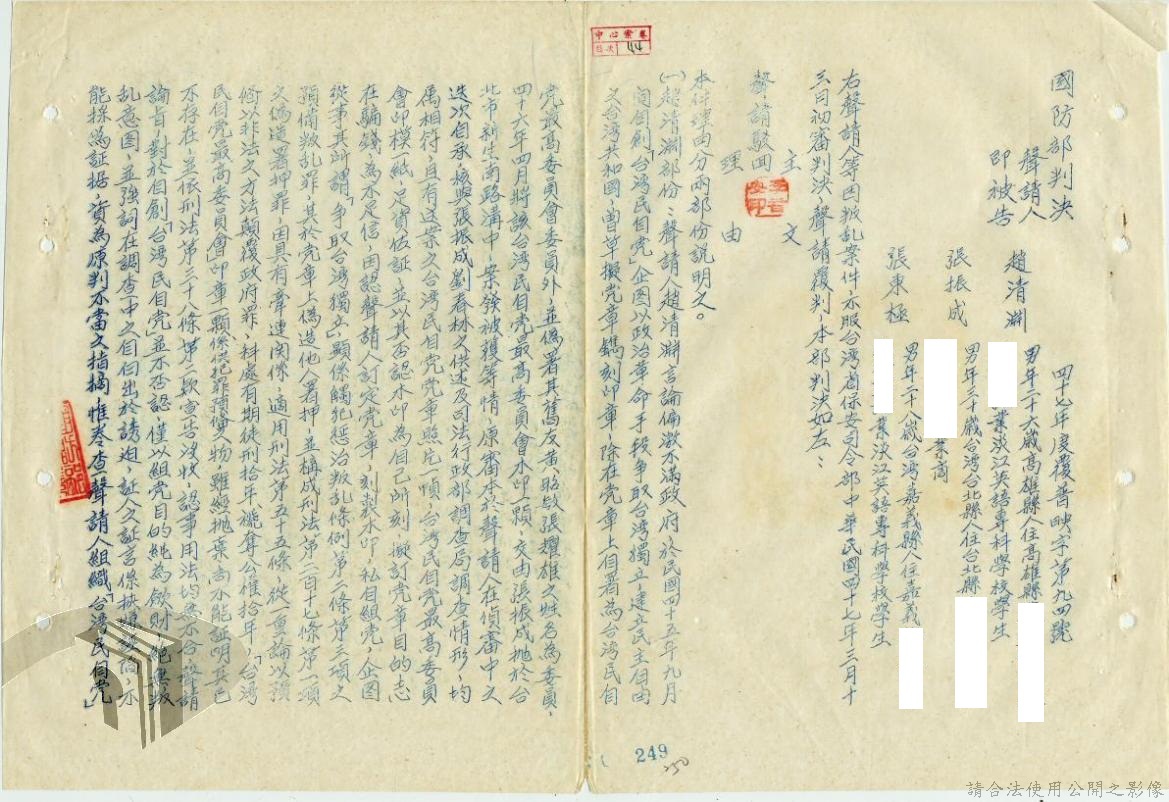 卷案心中
目次 44
國防部判決
四十七年度覆普畛字第九四號
聲請人
即被告
趙清淵 男年二十六歲高雄縣人住高雄縣
業淡江英語專科學校學生
張振成 男年三十歲台湾台北縣人住台北縣
業商
張東極 男年二十八歲台湾嘉義縣人住嘉義
業淡江英語專科學校學生
右聲請人等因叛乱案件不服台湾省保安司令部中華民國四十七年三月十
三日初審判決，聲請覆判，本部判決如左：
主文
聲請駁回
理由
本件理由分兩部份說明之。
(一)趙清淵部份：聲請人趙清淵言論偏激不滿政府，於民國四十五年九月
間自創「台湾民自党」企图以政治革命手段爭取台湾獨立，建立民主自由
之台湾共和國，曾草擬党章鐫刻印章，除在党章上自署為台湾民自
党最高委員會委員外，並偽署其舊友黃昭敏張耀雄之姓名為委員，
四十六年四月將該台湾民自党最高委員會木印一顆，交由張振成拋於台
北市新生南路溝中，案發被獲等情，原審本於聲請人在偵審中之
迭次自承核與張振成劉春林之供述及司法行政部調查局調查情形，均
属相符，且有送案之台湾民自党党章照片一幀，台湾民自党最高委員
會印模一紙，足資佐証，並以其否認木印為自己所刻，擬訂党章目的志
在騙錢，為不足信，因認聲請人訂定党章，刻製木印，私自組党，企图
從事其所謂「爭取台湾獨立」顯係觸犯惩治叛乱條例第二條第三項之
預備叛乱罪，其於党章上偽造他人署押，並構成刑法第二百十七條第一項
之偽造署押罪，因具有牽連関係，適用刑法第五十五條，從一重論以預
備以非法之方法顛覆政府罪，科處有期徒刑拾年，褫奪公權拾年，「台湾
民自党最高委員會」印章一顆係供犯罪預備之物，雖經拋棄，尚不能証明其已
不存在，並依刑法第三十八條第二款宣告沒收，認事用法均無不合，聲請
論旨，對於自創「台湾民自党」並不否認，僅以組党目的純為斂財，絕無叛
乱意图，並強詞在調查中之自白出於誘迫，証人之証言係挾嫌，不
能採為証据，資為原判不當之指摘，惟卷查聲請人組織「台湾民自党」
249
250
請合法使用公開之影像